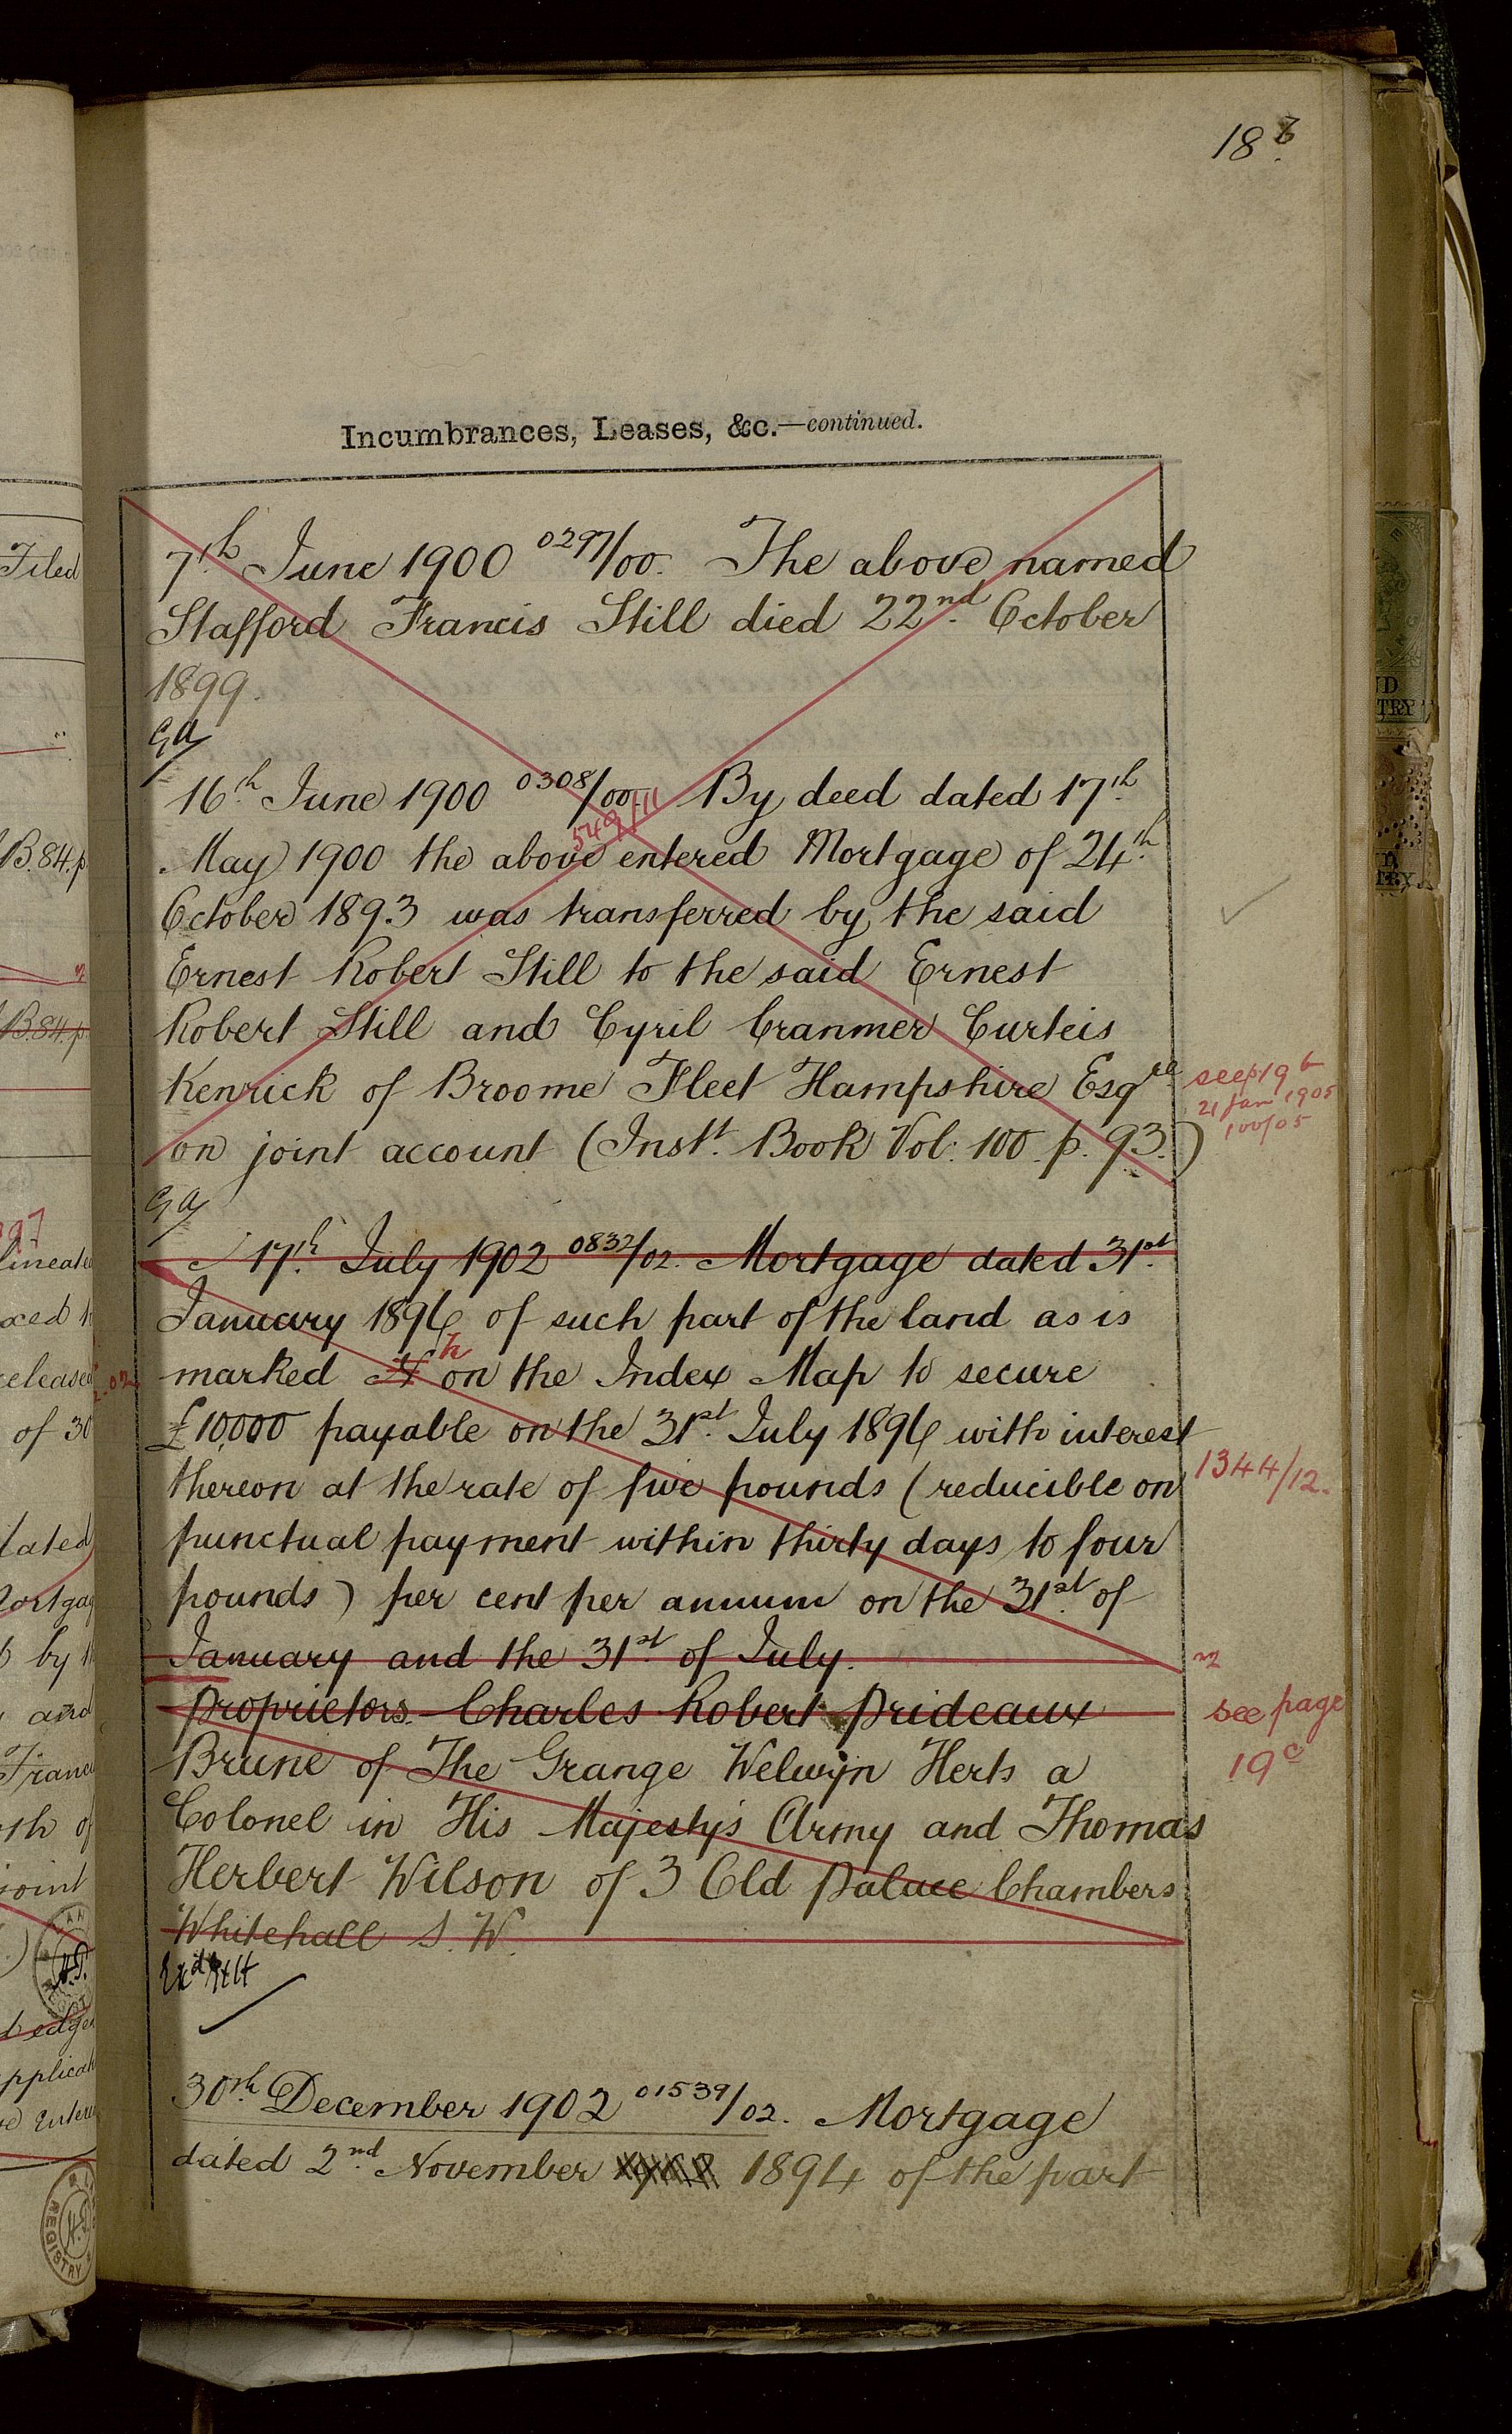 18
Incumbrances, Leases, &c.—continued.
7th June 1900 0297/00. The above named
Stafford Francis Still died 22nd October
1899.
GA
16th June 1900 0308/00 By deed dated 17th
549/11
May 1900 the above entered Mortgage of 24th
October 1893 was transferred by the said
Ernest Robert Still to the said Ernest
Robert Still and Cyril Cranmer Curteis
Kenrick of Broome Fleet Hampshire Esqre
see p 19 b
21 Jan 1905
100/05
on joint account (Instt. Book Vol: 100 p. 93.)
GA
17th July 1902 0832/02. Mortgage dated 31st
January 1896 of such part of the land as is
marked h on the Index Map to secure
£10,000 payable on the 31st July 1896 with interest
thereon at the rate of five pounds (reducible on
1344/12.
punctual payment within thirty days to four
pounds) per cent per annum on the 31st of
January and the 31st of July.
Proprietors. Charles Robert Prideaux
see page
19c
Brune of The Grange Welwyn Herts a
Colonel in His Majesty's Army and Thomas
Herbert Wilson of 3 Old Palace Chambers
Whitehall S.W.
30th December 1902 01539/02. Mortgage
dated 2nd November 1894 of the part
Filed
B.84.p
B.84.p.
of 30
by
and
joint
of
REGISTRY